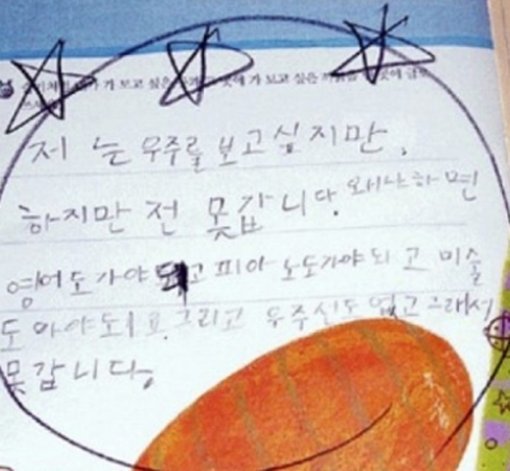 가 보고 싶은 곳에 가 보고 싶은 까닭을
저 는 우주를 보고싶지만,
하지만 전 못갑니다. 왜냐하면
영어도가야되고 피아노도가야되고 미술
도 아야도ㅣ요. 그리고 우주신도 없고 그래서
못갑니다.